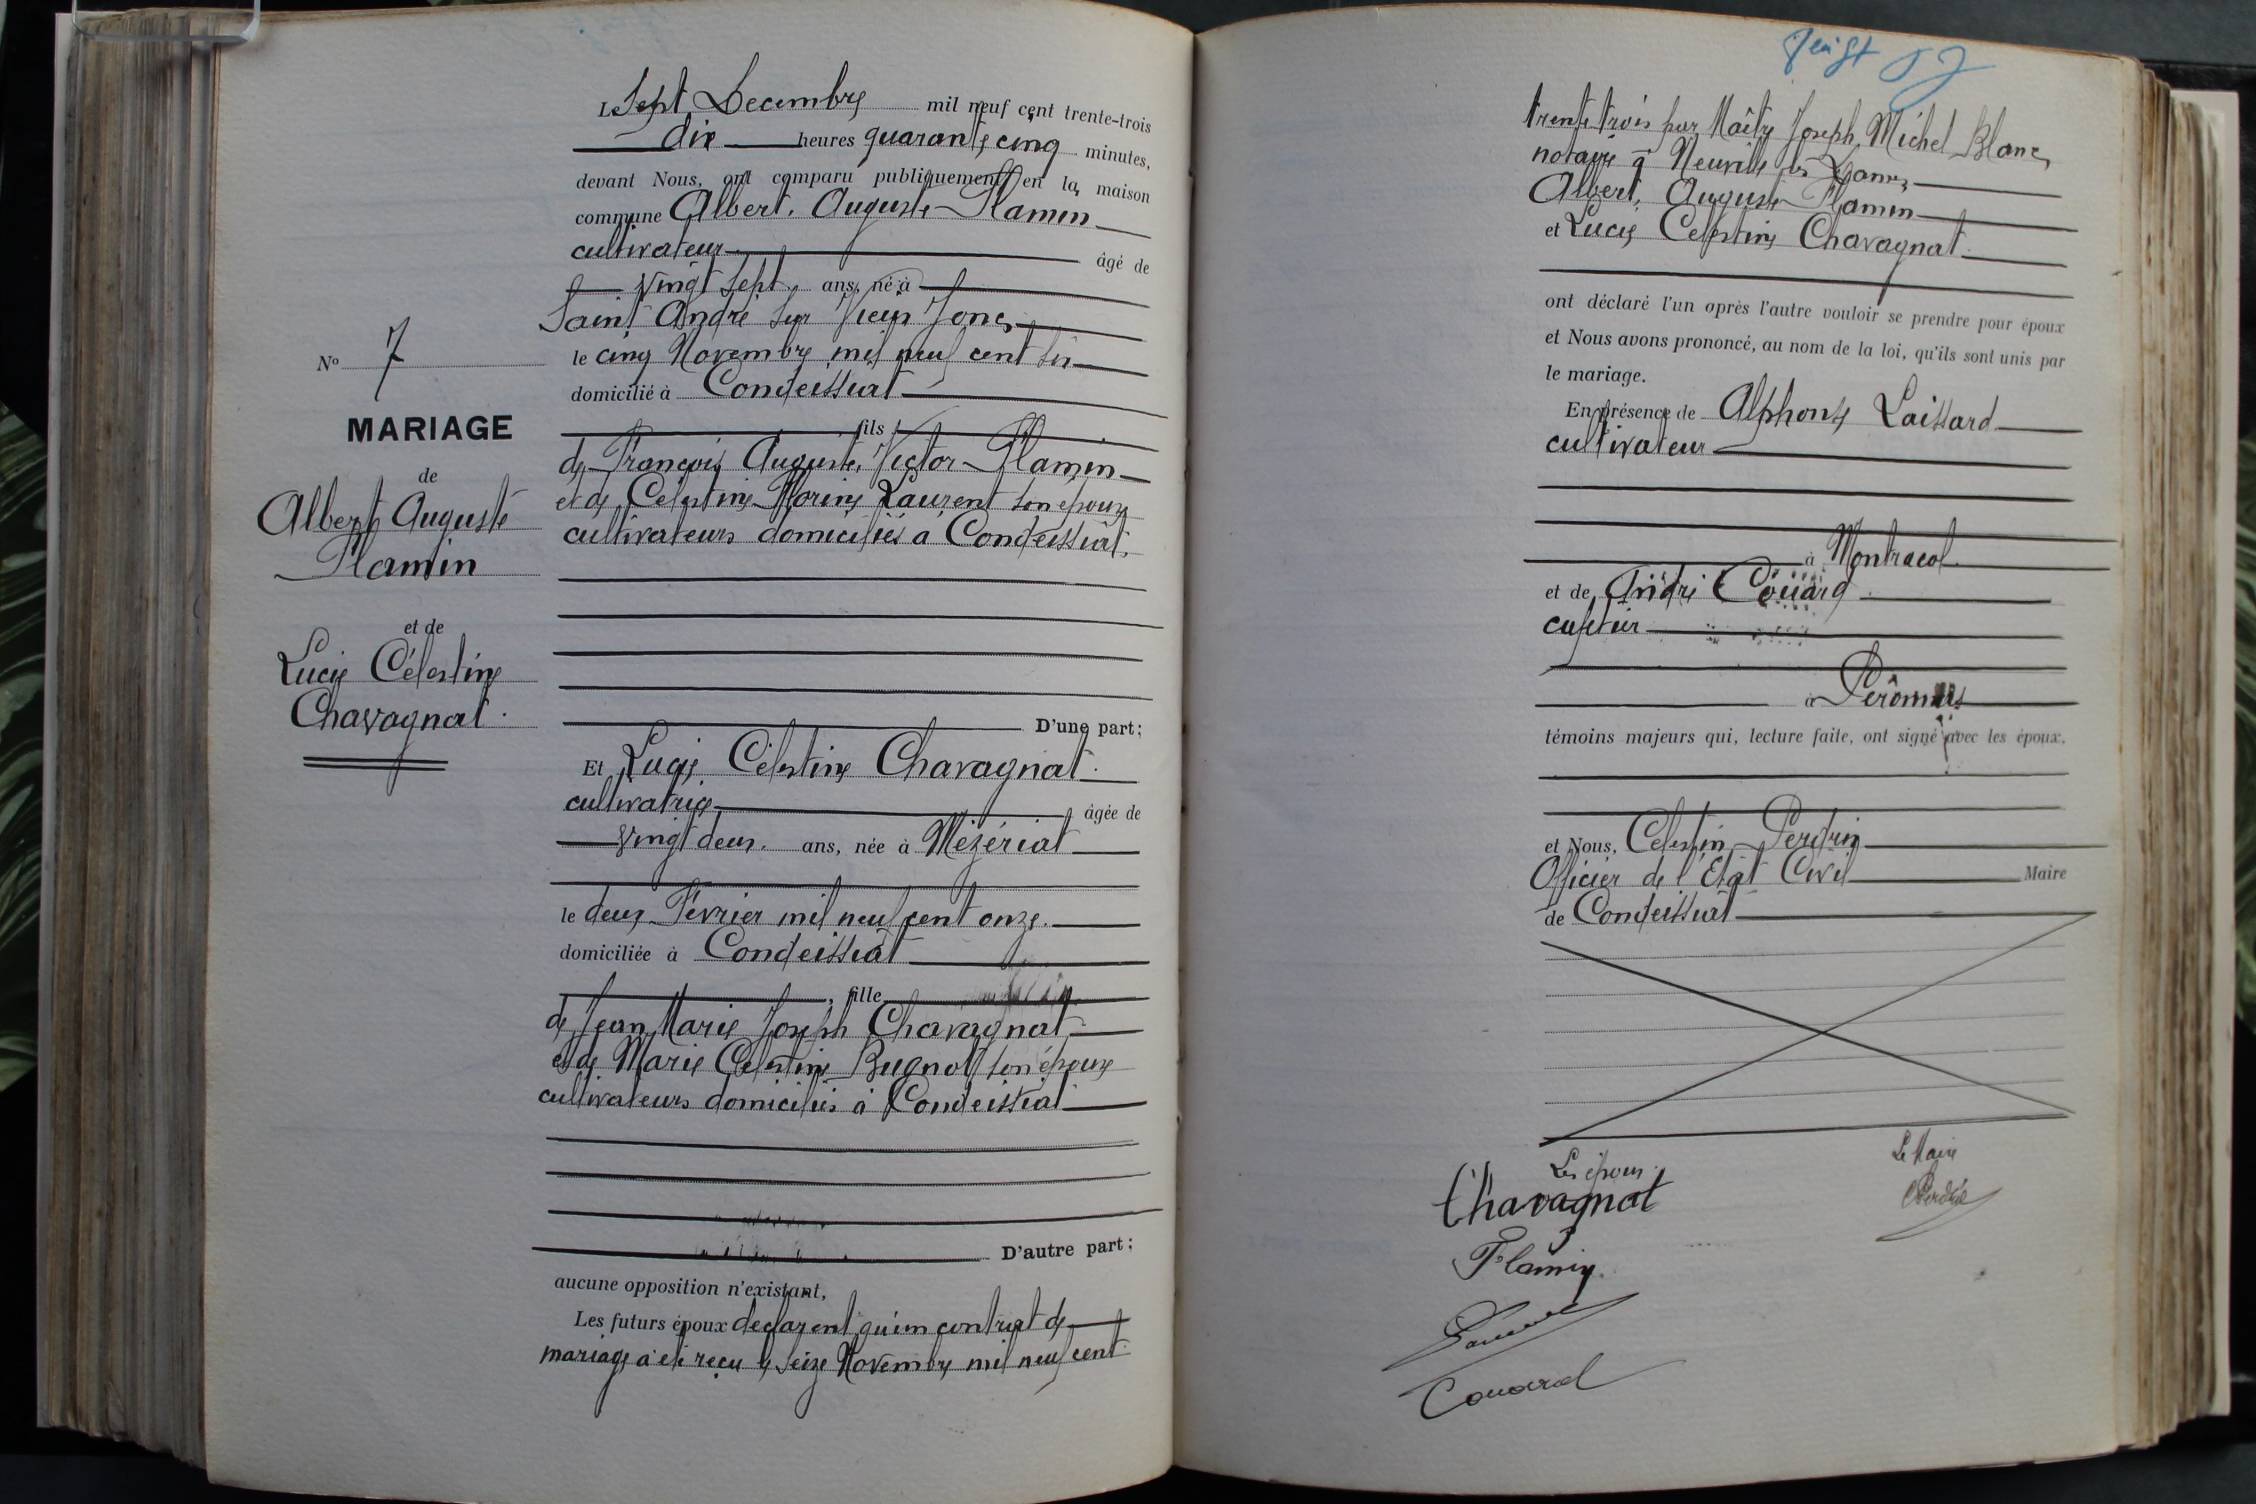 Le Sept Decembre mil neuf cent trente-trois
dix heures quarante cinq minutes,
devant Nous, ont comparu publiquement en la maison
commune Albert, Auguste Flamin
cultivateur âgé de
vingt sept ans, né à
Saint André sur Vieux Jonc
le cinq Novembre mil neuf cent six
domicilié à Condeissiat
fils
de François Auguste, Victor Flamin
et de Célestine Florine Laurent son épouse
cultivateurs domiciliés à Condeissiat.
D'une part;
N° 7
MARIAGE
de
Albert Auguste
Flamin
et de
Lucie Célestine
Chavagnat.
Et Lucie Célestine Chavagnat.
cultivatrice âgée de
vingt deux. ans, née à Mézériat
le deux Février mil neuf cent onze.
domiciliée à Condeissiat
, fille
de Jean Marie Joseph Chavagnat
et de Marie Celestine Bugnot son épouse
cultivateurs domiciliés à Condeissiat
D'autre part;
aucune opposition n'existant,
Les futurs époux declarent qu'un contrat de
mariage a été reçu le seize Novembre mil neuf cent
trente trois par Maître Joseph, Michel Blanc
notaire à Neuville les Dames
Albert, Auguste Flamin
et Lucie Celestine Chavagnat.
ont déclaré l'un après l'autre vouloir se prendre pour époux
et Nous avons prononcé, au nom de la loi, qu'ils sont unis par
le mariage.
En présence de Alphonse Laissard
cultivateur
à Montracol.
et de André Couard
cafetier
à Perônnas
témoins majeurs qui, lecture faite, ont signé avec les époux.
et Nous, Celestin Perdrix
Officier de l'Etat Civil Maire
de Condeissiat
Les époux.
Le Maire
Chavagnat
Flamin
Couard